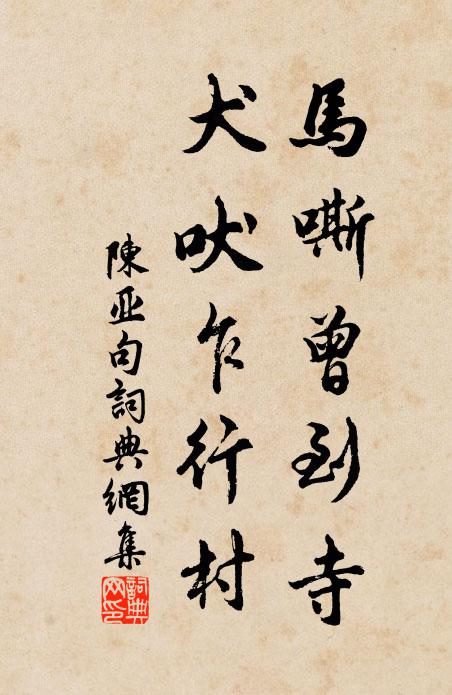 馬嘶曾到寺
犬吠乍行村
陳亚句詞典網集
詞典